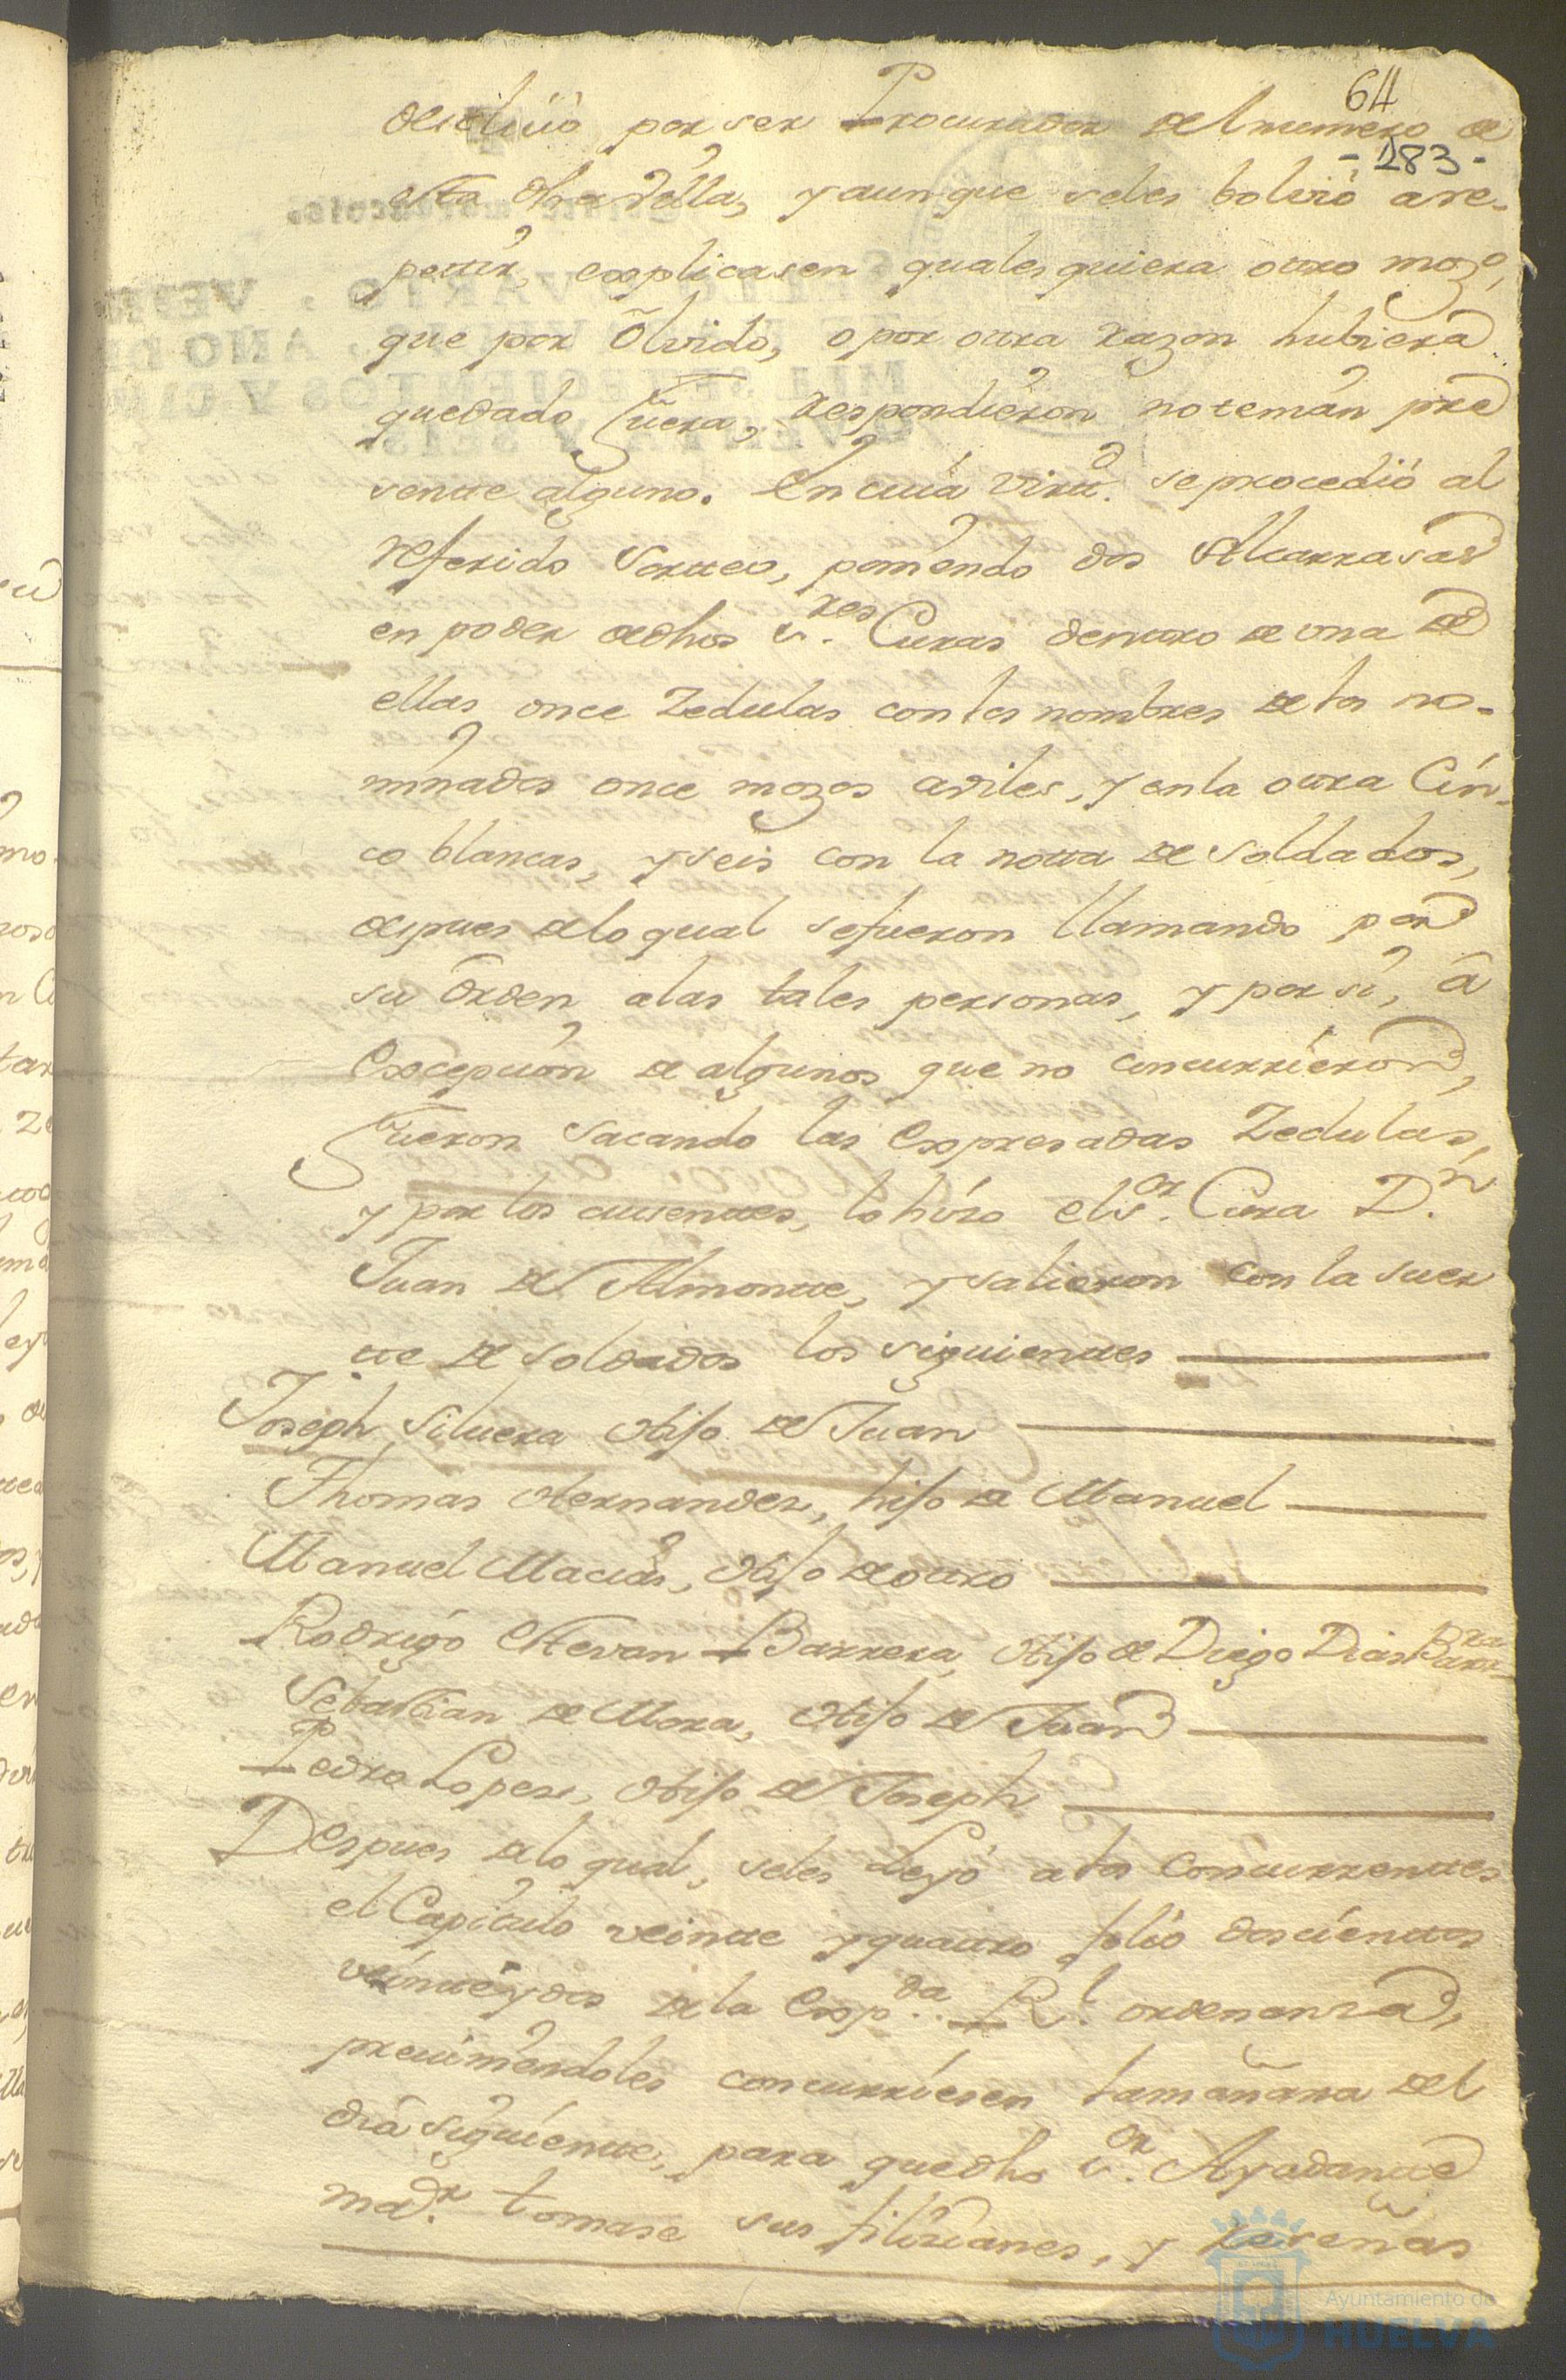 64
-283-
se eligiò por ser Procurador del numero de
esta dha Villa, y aunque seles bolvió a re-
petir, explicasen qualesquiera otro mozo,
que por Olvido, o por otra razon hubiera
quedado fuera, respondieron no tenian pre
sente alguno. En cuia virtd. se procedió al
referido Sorteo, poniendo dos Alcarrasas
en poder dedhos Sres. Curas dentro de una de
ellas once Zedulas con los nombres de los no-
minados once mozos aviles, y enla otra Cin-
co blancas, y seis con la nota de Soldados,
despues delo qual sefueron llamando por
su Orden alas tales personas, y por si, â
Excepcion de algunos que no concurrieron,
fueron Sacando las Expresadas Zedulas,
y por los ausentes, lo hizo elSor. Cura Dn.
Juan de Almonte, y salieron con la suer
te de soldados los siguientes
Joseph Siluera Hijo de Juan
Thomas Hernandez, hijo de Manuel
Manuel Macias, Hijo de otro
Rodrigo Estevan Barrera, Hijo de Diego Dias Barrra
Sebastian de Mora, Hijo de Juan
Pedro Lopez, Hijo de Joseph
Despues delo qual, seles Leyó a los Concurrentes
el Capitulo veinte y quatro folio doscientos
veinte y dos dela Expda. Rl. ordenanza,
previniendoles concurriesen lamañana del
dia siguiente, para quedho Sor. Ayudante
mar. tomase sus filiziaones, y reseñas
Ayuntamiento de
HUELVA